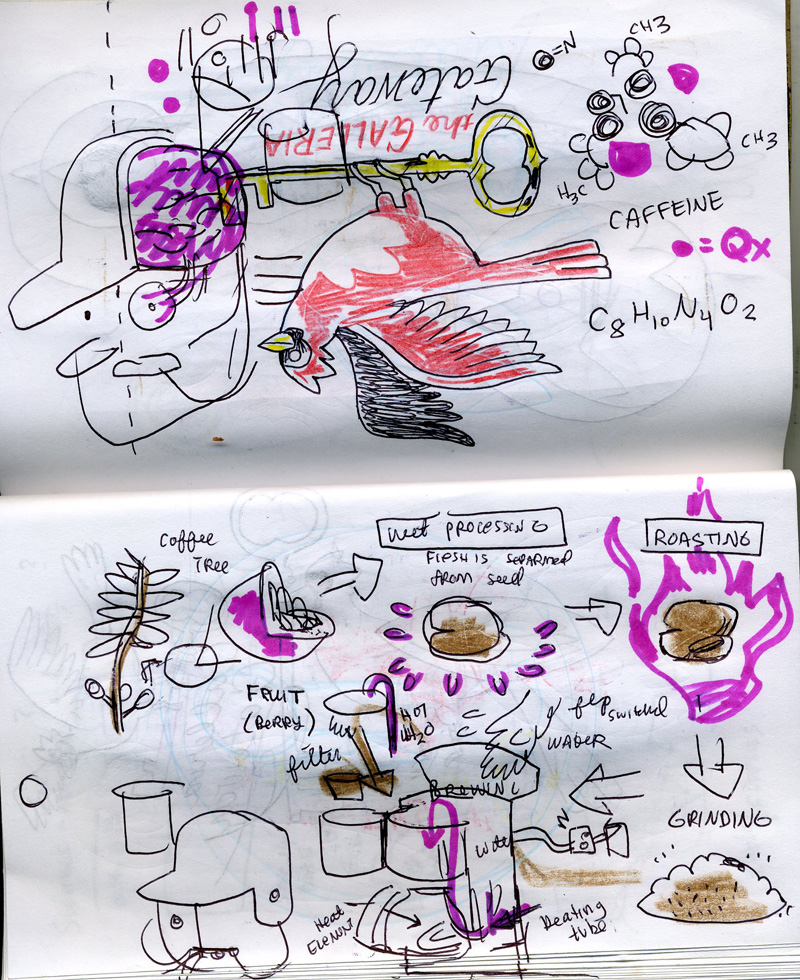 CH3
=N
Gateway
the GALLERIA
CH3
H3C
CAFFEINE
= Qx
C8H10N4O2
Coffee
TREE
Wet PROCESSING
FLESH IS SEPARATED
from seed
ROASTING
FRUIT
(BERRY)
HOT
H2O
filter
flip switched
WATER
BREWING
GRINDING
Water
Heat
ELEMENT
Heating
tube